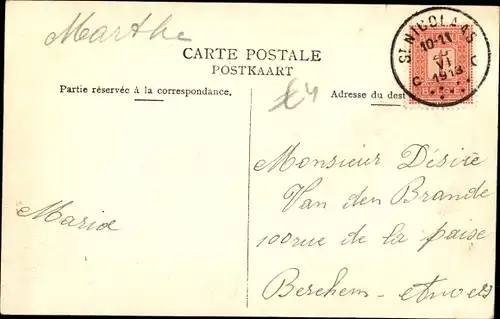 Marthe
CARTE POSTALE
POSTKAART
Partie réservée à la correspondance.
Adresse du dest
ST NICOLAAS
10-11
VI
1913
C C
£4
Monsieur Désiré
Van den Brande
100 rue de la paise
Berchem - Anvers
Maria